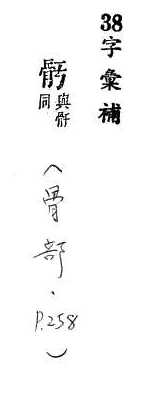 38字彙補
與
同
(骨部、P.258)